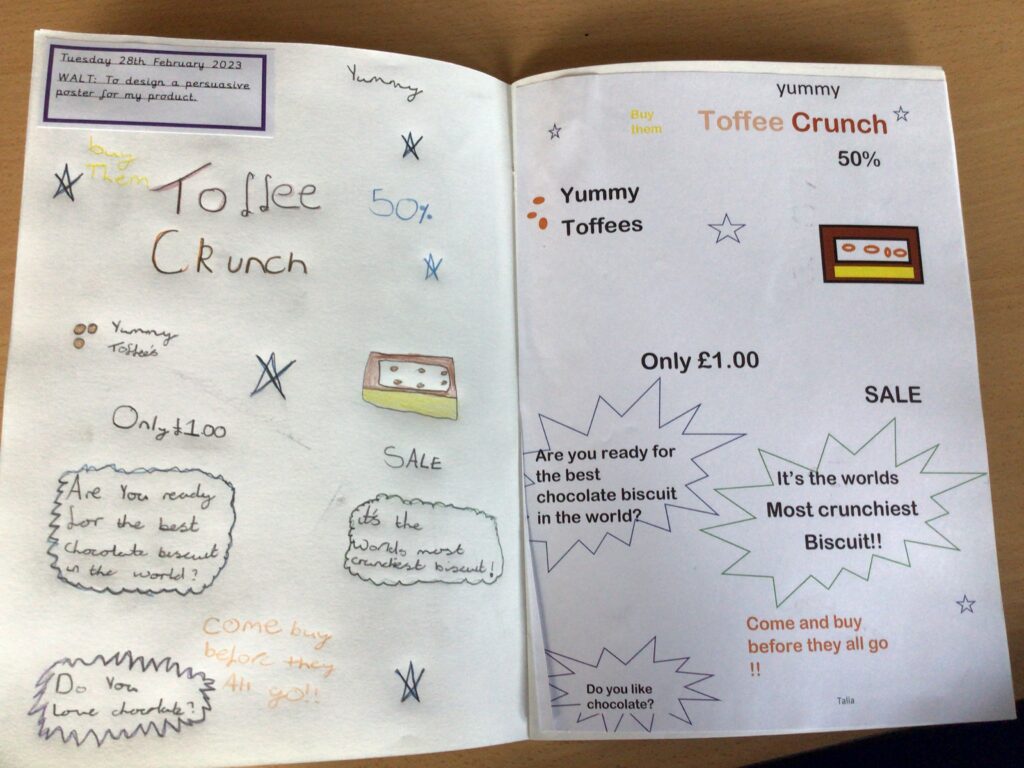 Tuesday 28th February 2023
WALT: To design a persuasive
poster for my product.
Yummy
buy
Them
Toffee
Crunch
50%
Yummy
Toffee's
Only £1.00
SALE
Are You ready
for the best
chocolate biscuit
in the world?
it's the
worlds most
crunchiest biscuit!
Come buy
before they
All go!!
Do You
Love chocolate?
yummy
Buy
them
Toffee Crunch
50%
Yummy
Toffees
Only £1.00
SALE
Are you ready for
the best
chocolate biscuit
in the world?
It's the worlds
Most crunchiest
Biscuit!!
Come and buy
before they all go
!!
Do you like
chocolate?
Talia